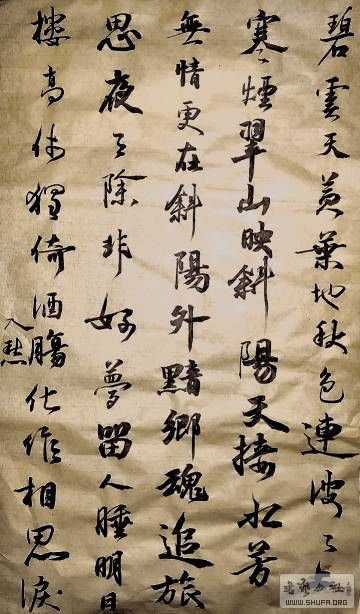 碧雲天黄葉地秋色連波〻上
寒煙翠山映斜陽天接水芳
無情更在斜陽外黯鄉魂追旅
思夜〻除非好夢留人睡明月
樓高休獨倚酒腸化作相思淚
入愁
WWW.SHUFA.ORG